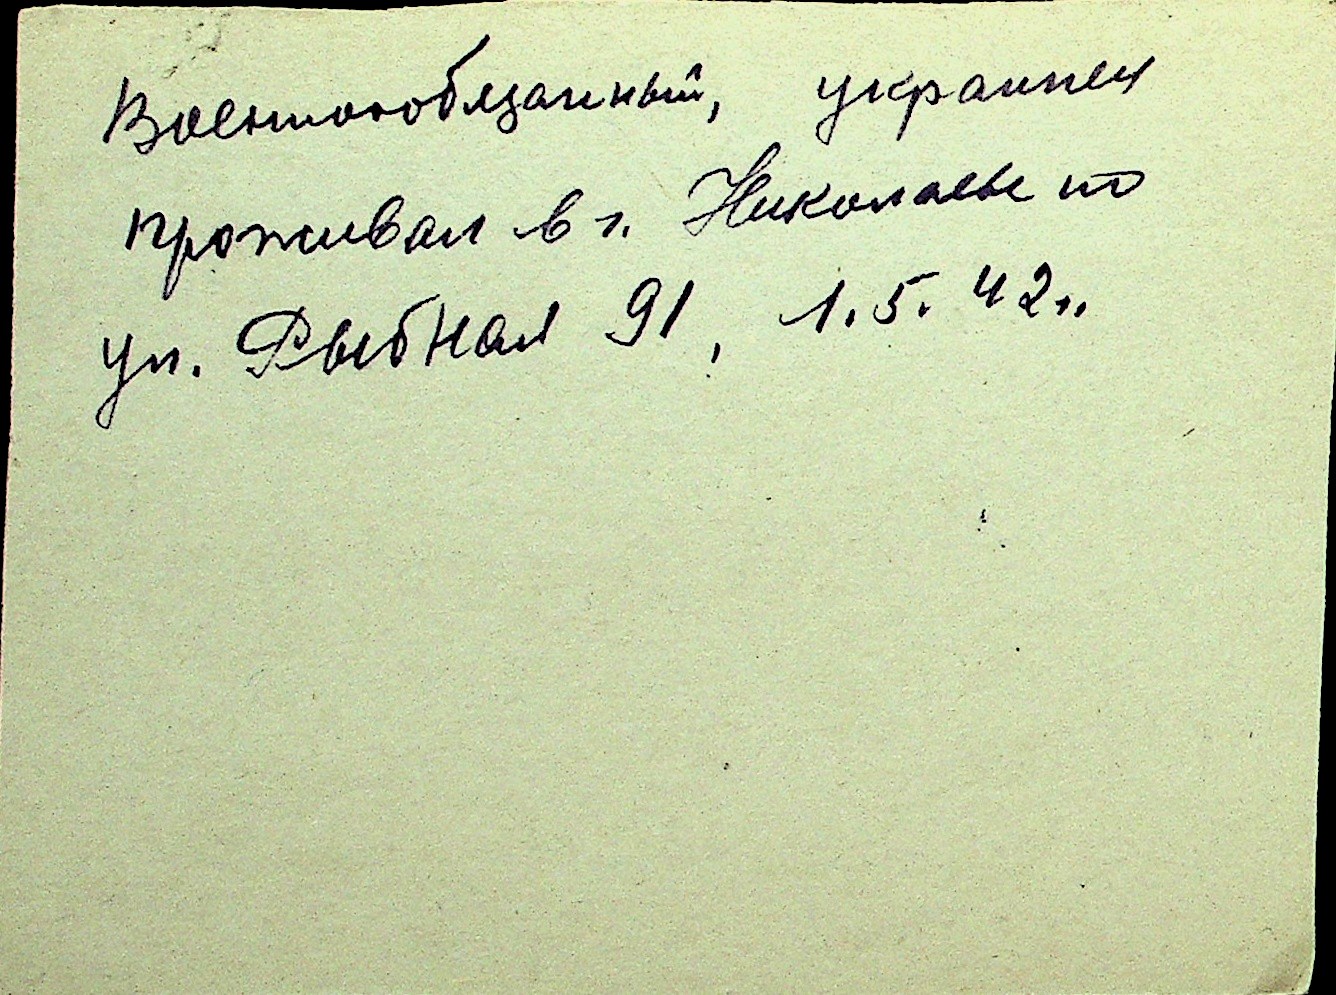 Военнообязанный, украинец
проживал в г. Николаеве по
ул. Рыбная 91, 1.5.42г.